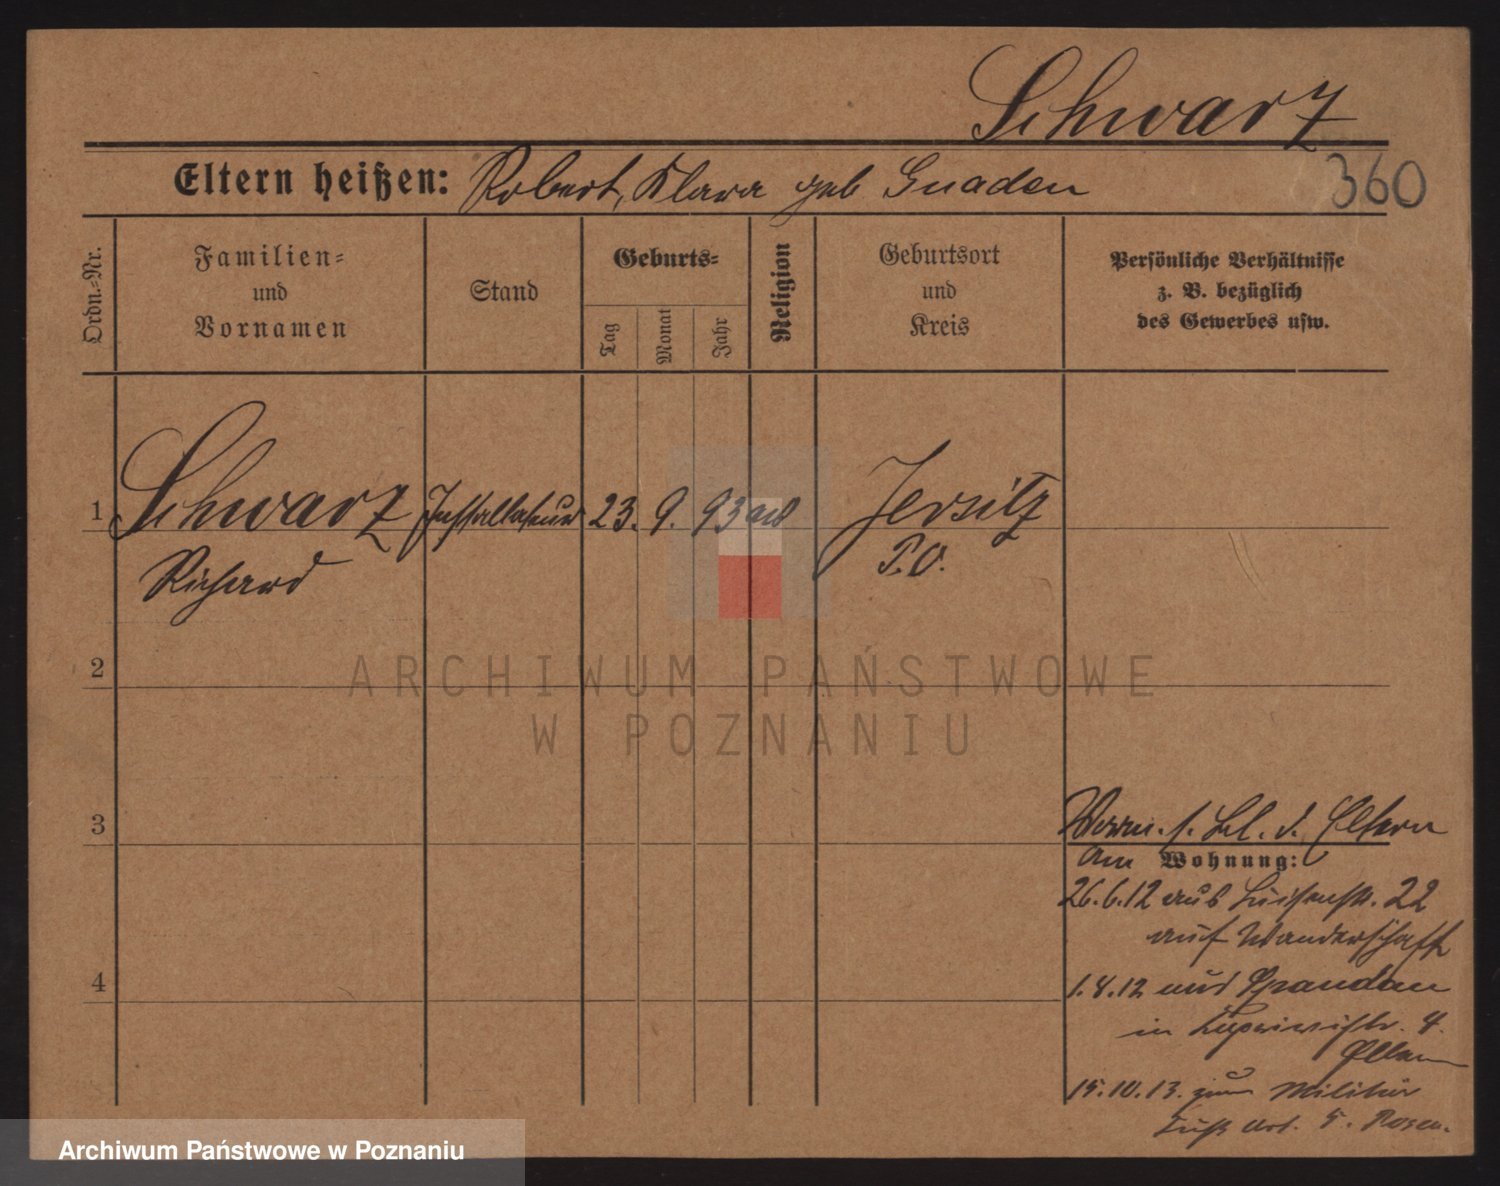 Schwarz
Eltern heißen: Robert, Klara geb Gnaden
360
Ordn.-Nr.
Familien-
und
Vornamen
Stand
Geburts-
Tag
Monat
Jahr
Religion
Geburtsort
und
Kreis
Persönliche Verhältnisse
z. B. bezüglich
des Gewerbes usw.
1 Schwarz Installateur 23. 9. 93 Jersitz
Richard P.O.
2
ARCHIWUM PAŃSTWOWE
W POZNANIU
3
d. Eltern
am Wohnung:
26.6.12 aus Luisenstr. 22
auf Wanderschaft
4
1.8.12 aus Spandau
in 4.
Eltern
15.10.13. zum Militär
Fuß Art. 5. Posen.
Archiwum Państwowe w Poznaniu